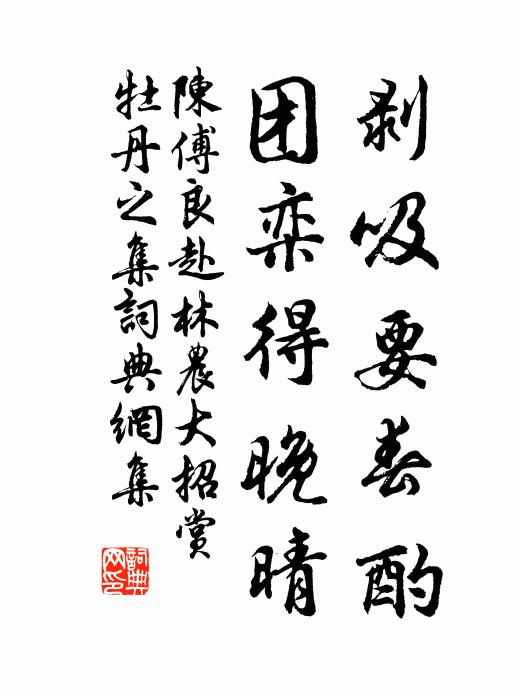 剥吸要春酌
团奕得晚晴
陳傅良赴林農大招賞
牡丹之集詞典網集
詞典网印